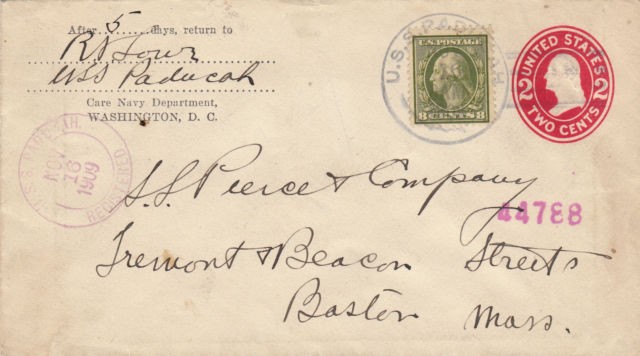 After 5 days, return to
USS Paducah
Care Navy Department,
WASHINGTON, D. C.
U.S.S. PADUCAH
U.S. POSTAGE
8 CENTS 8
UNITED STATES
2 2
TWO CENTS
U.S.S. PADUCAH.
NOV
16
1909
REGISTERED
S. S. Pierce & Company
44788
Tremont & Beacon Streets
Boston Mass.